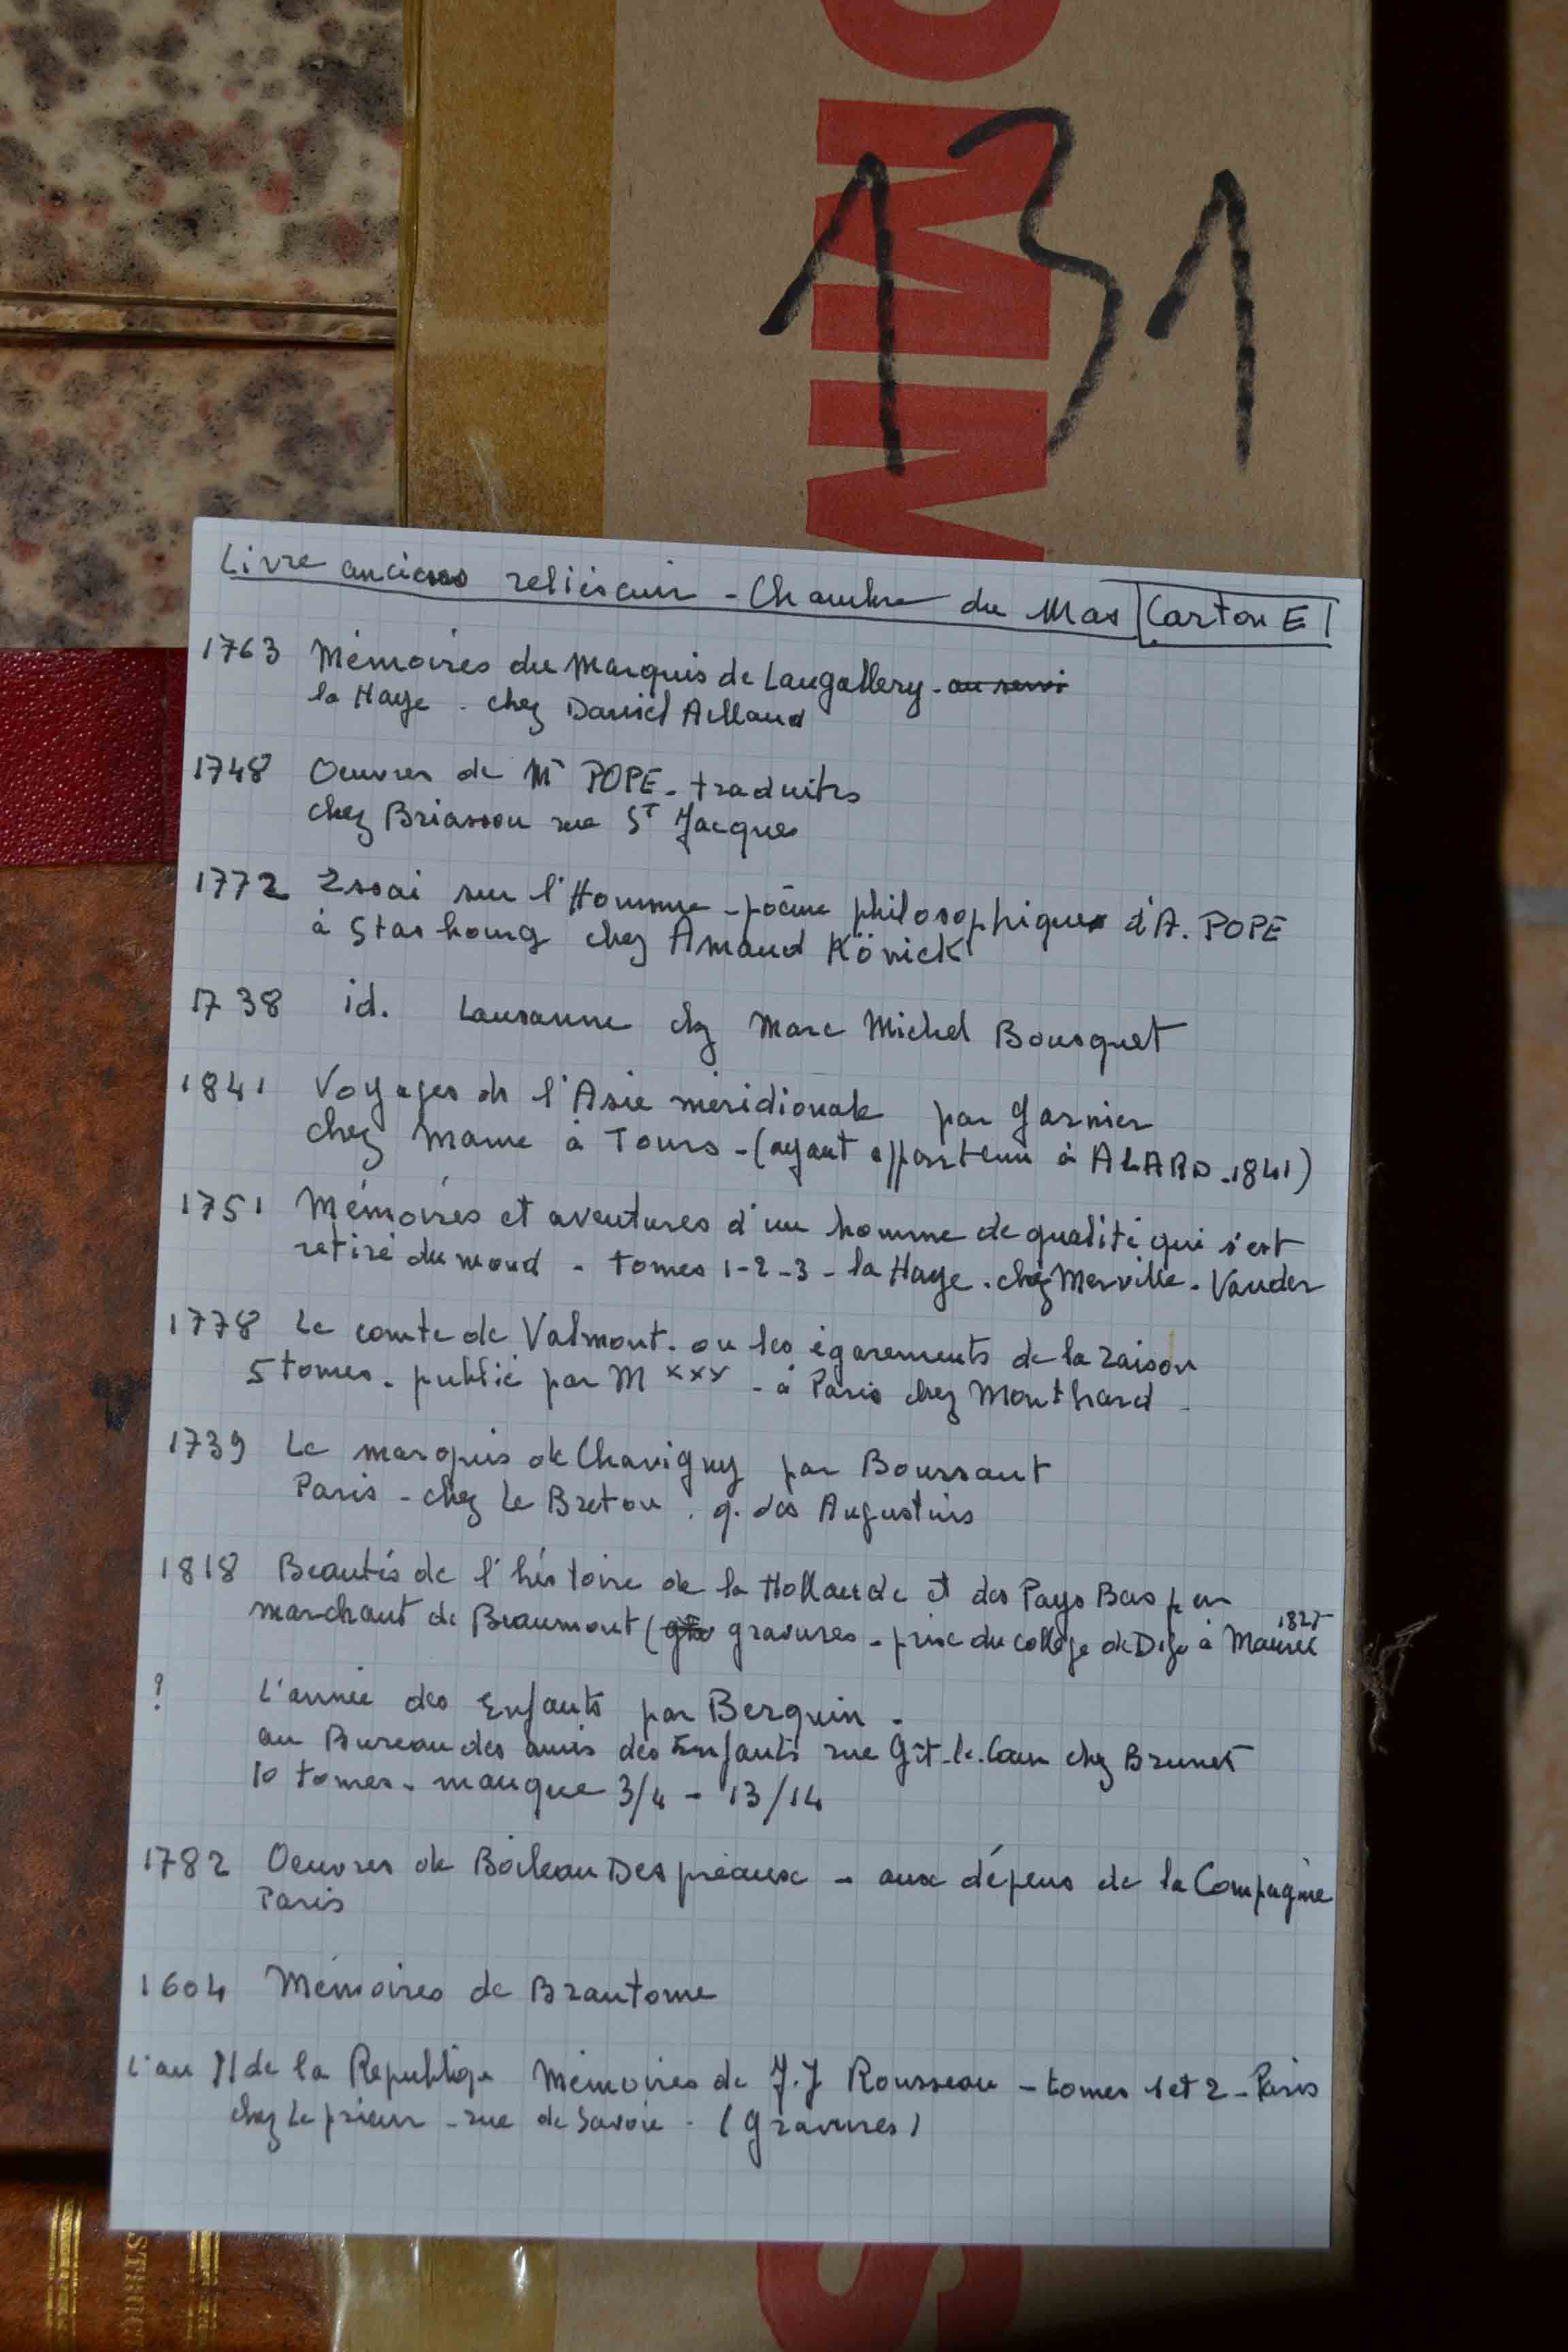 131
Livre anciens reliés cuir - Chambre du Mas Carton E1
1763 Mémoires du Marquis de Langallery - au servi
la Haye - chez Daniel Aillaud
1748 Oeuvres de Mr POPE - traduites
chez Briasson rue St Jacques
1772 Essai sur l'Homme - poème philosophique d'A. POPE
à Stasbourg chez Amaud Könick
1738 id. Lausanne chz Marc Michel Bousquet
1841 Voyages ds l'Asie méridionale par Garnier
chez Mame à Tours - (ayant appartenu à ALARD - 1841)
1751 Mémoires et aventures d'un homme de qualité qui s'est
retiré du mond - tomes 1-2-3 - la Haye - chez Merville - Vander
1778 Le comte de Valmont - ou les égarements de la raison
5 tomes - publié par M xxx - à Paris chez Monthard -
1739 Le marquis de Chavigny par Boursaut
Paris - chez Le Breton . q. des Augustins
1818 Beautés de l'histoire de la Hollande et des Pays Bas par
marchant de Beaumont ( gravures - prix du collège de à 182
? L'année des Enfants par Berquin -
au Bureau des amis des Enfants rue Gît-le-Coeur chz Brunet
10 tomes - manque 3/4 - 13/14
1782 Oeuvres de Boileau Despréaux - aux dépens de la Compagnie
Paris
1604 Mémoires de Brantome
L'an II de la Republiqe Mémoires de J.J Rousseau - tomes 1 et 2 - Paris
chez Le prieur - rue de Savoie - (Gravures)